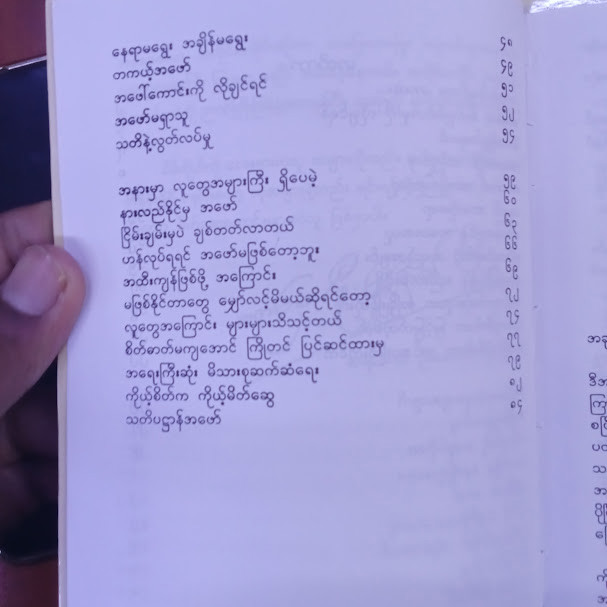 နေရာမရွေး အချိန်မရွေး ၄၈
တကယ့်အဖော် ၄၉
အပေါ်ကောင်းကို လိုချင်ရင် ၅၁
အဖော်မရှာသူ ၅၂
သတိနဲ့လွတ်လပ်မှု ၅၄
အနားမှာ လူတွေအများကြီး ရှိပေမဲ့ ၅၉
နားလည်နိုင်မှ အဖော် ၆၀
ငြိမ်းချမ်းမှပဲ ချစ်တတ်လာတယ် ၆၃
ဟန်လုပ်ရရင် အဖော်မဖြစ်တော့ဘူး ၆၆
အထီးကျန်ဖြစ်ဖို့ အကြောင်း ၆၉
မဖြစ်နိုင်တာတွေ မျှော်လင့်မိမယ်ဆိုရင်တော့ ၇၂
လူတွေအကြောင်း များများသိသင့်တယ် ၇၄
စိတ်ဓာတ်မကျအောင် ကြိုတင် ပြင်ဆင်ထားမှ ၇၇
အရေးကြီးဆုံး မိသားစုဆက်ဆံရေး ၇၉
ကိုယ့်စိတ်က ကိုယ့်မိတ်ဆွေ ၈၂
သတိပဋ္ဌာန်အဖော် ၈၄